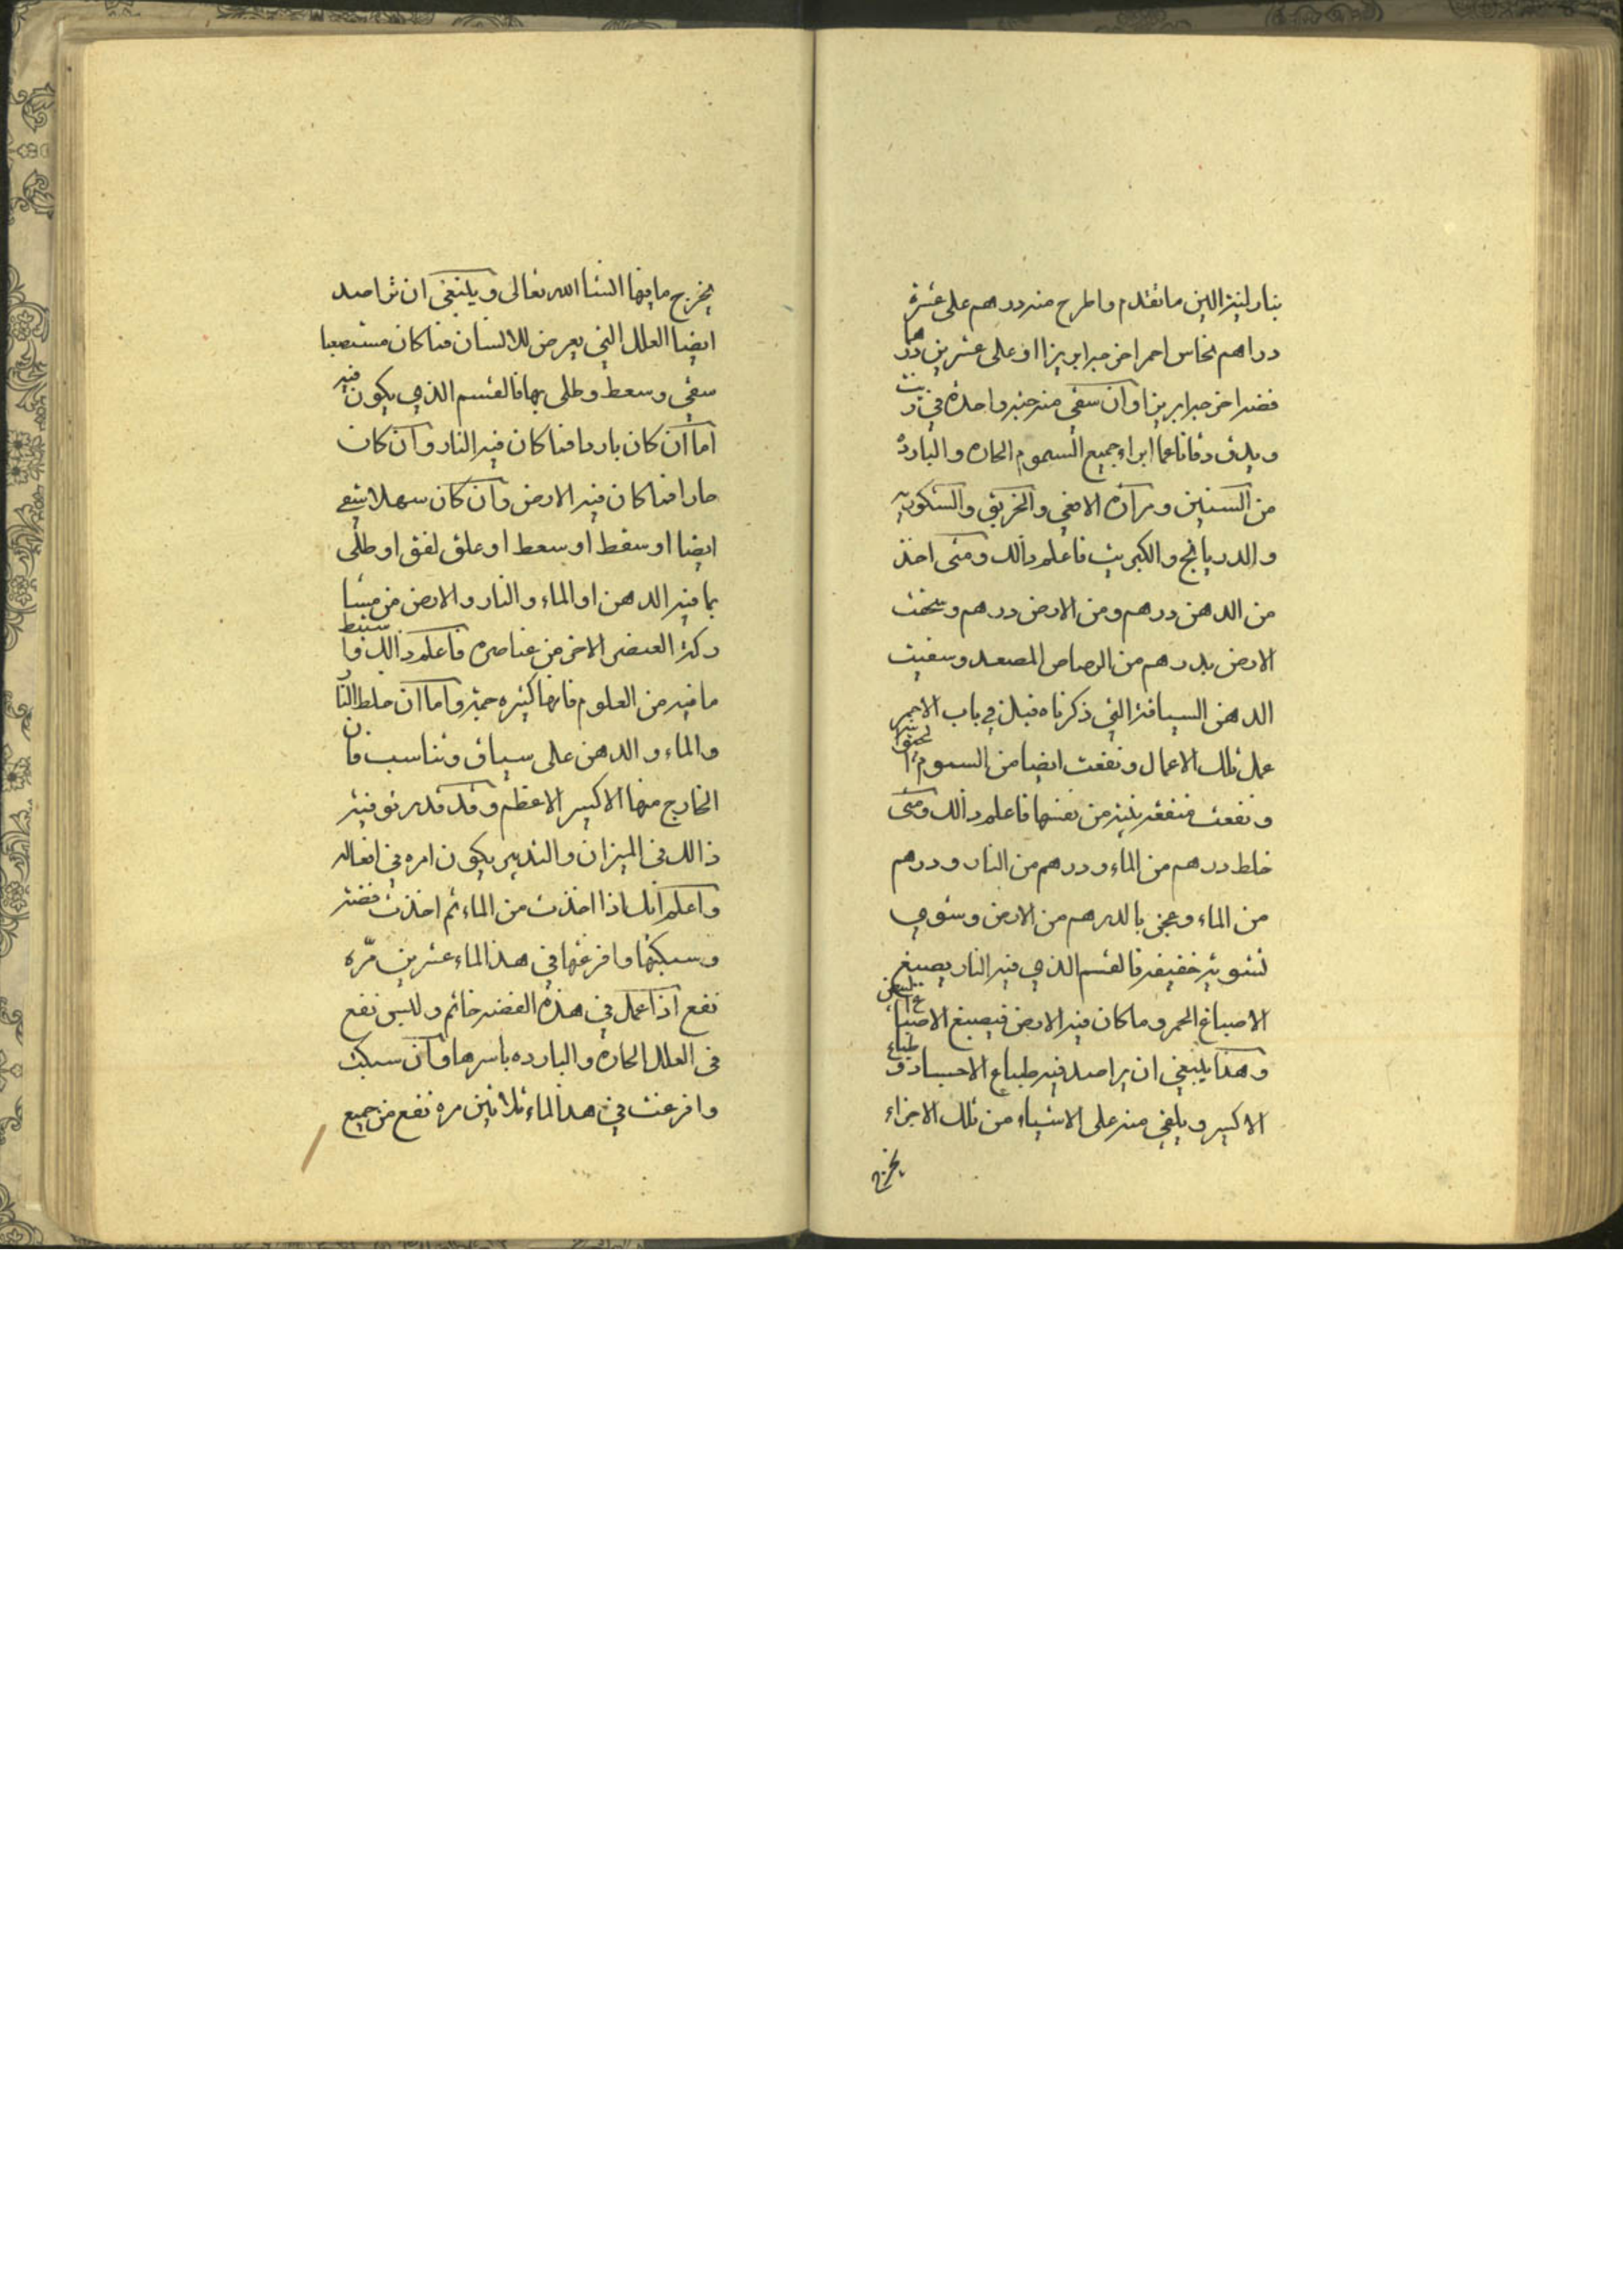 بنار لينة الين ما تقدم واطرح منه درهم على عشرة
دراهم نحاس احمر اخرجه ابريزا او على عشرين درهما
فضه اخرجه ابريزا وان سقى منه حبه واحده في زيت
ويدف دفا ناعما ابراء جميع السموم الحاره والبارده
من السنين ومرارة الافعى والخربق والسكوبيه
والدريانج والكبريت فاعلم ذالك ومتى اخذ
من الدهن درهم ومن الارض درهم وسحقت
الارض بدرهم من الرصاص المصعد وسقيت
الدهن السياقة التي ذكرناه قبل في باب الاحمر
عمل تلك الاعمال ونفعت ايضا من السموم
ونفعت منفعه بينه من نفسها فاعلم ذالك ومتى
خلط درهم من الماء ودرهم من النار ودرهم
من الماء وعجن بالدرهم من الارض وشوي
تشويه خفيفه فالقسم الذي فيه النار يصبغ
الاصباغ الحمر وما كان فيه الارض فيصبغ الاصباغ البيض
وهذا ينبغي ان يراصد فيه طباع الاجساد وطباع
الاكسير ويلقى منه على الاشياء من تلك الاجزاء
يخرج
يخرج ما فيها انشا الله تعالى وينبغى ان تراصد
ايضا العلل التي يعرض للانسان فما كان مستصعبا
سقي وسعط وطلى بها فالقسم الذي يكون فيه
اما ان كان باردا فما كان فيه النار وان كان
حارا فما كان فيه الارض وان كان سهلا سقى
ايضا او سقط او سعط او علق لفق او طلى
بما فيه الدهن او الماء والنار والارض من مسا
ركة العنصر الاخر من عناصره فاعلم ذالك واستنبط
ما فيه من العلوم فانها كثيره جمة واما ان خلط النار
والماء والدهن على سياق وتناسب فان
الخارج منها الاكسير الاعظم وقد قدر توفية
ذالك في الميزان والتدبير يكون امره في افعاله
واعلم انك اذا اخذت من الماء ثم اخذت فضة
وسبكتها وافرغتها في هذا الماء عشرين مرّه
نفع اذا عمل في هذه الفضه خاتم ولبس نفع
فى العلل الحاره والبارده باسرها وان سبكت
وافرغت في هذا الماء ثلاثين مره نفع من جميع